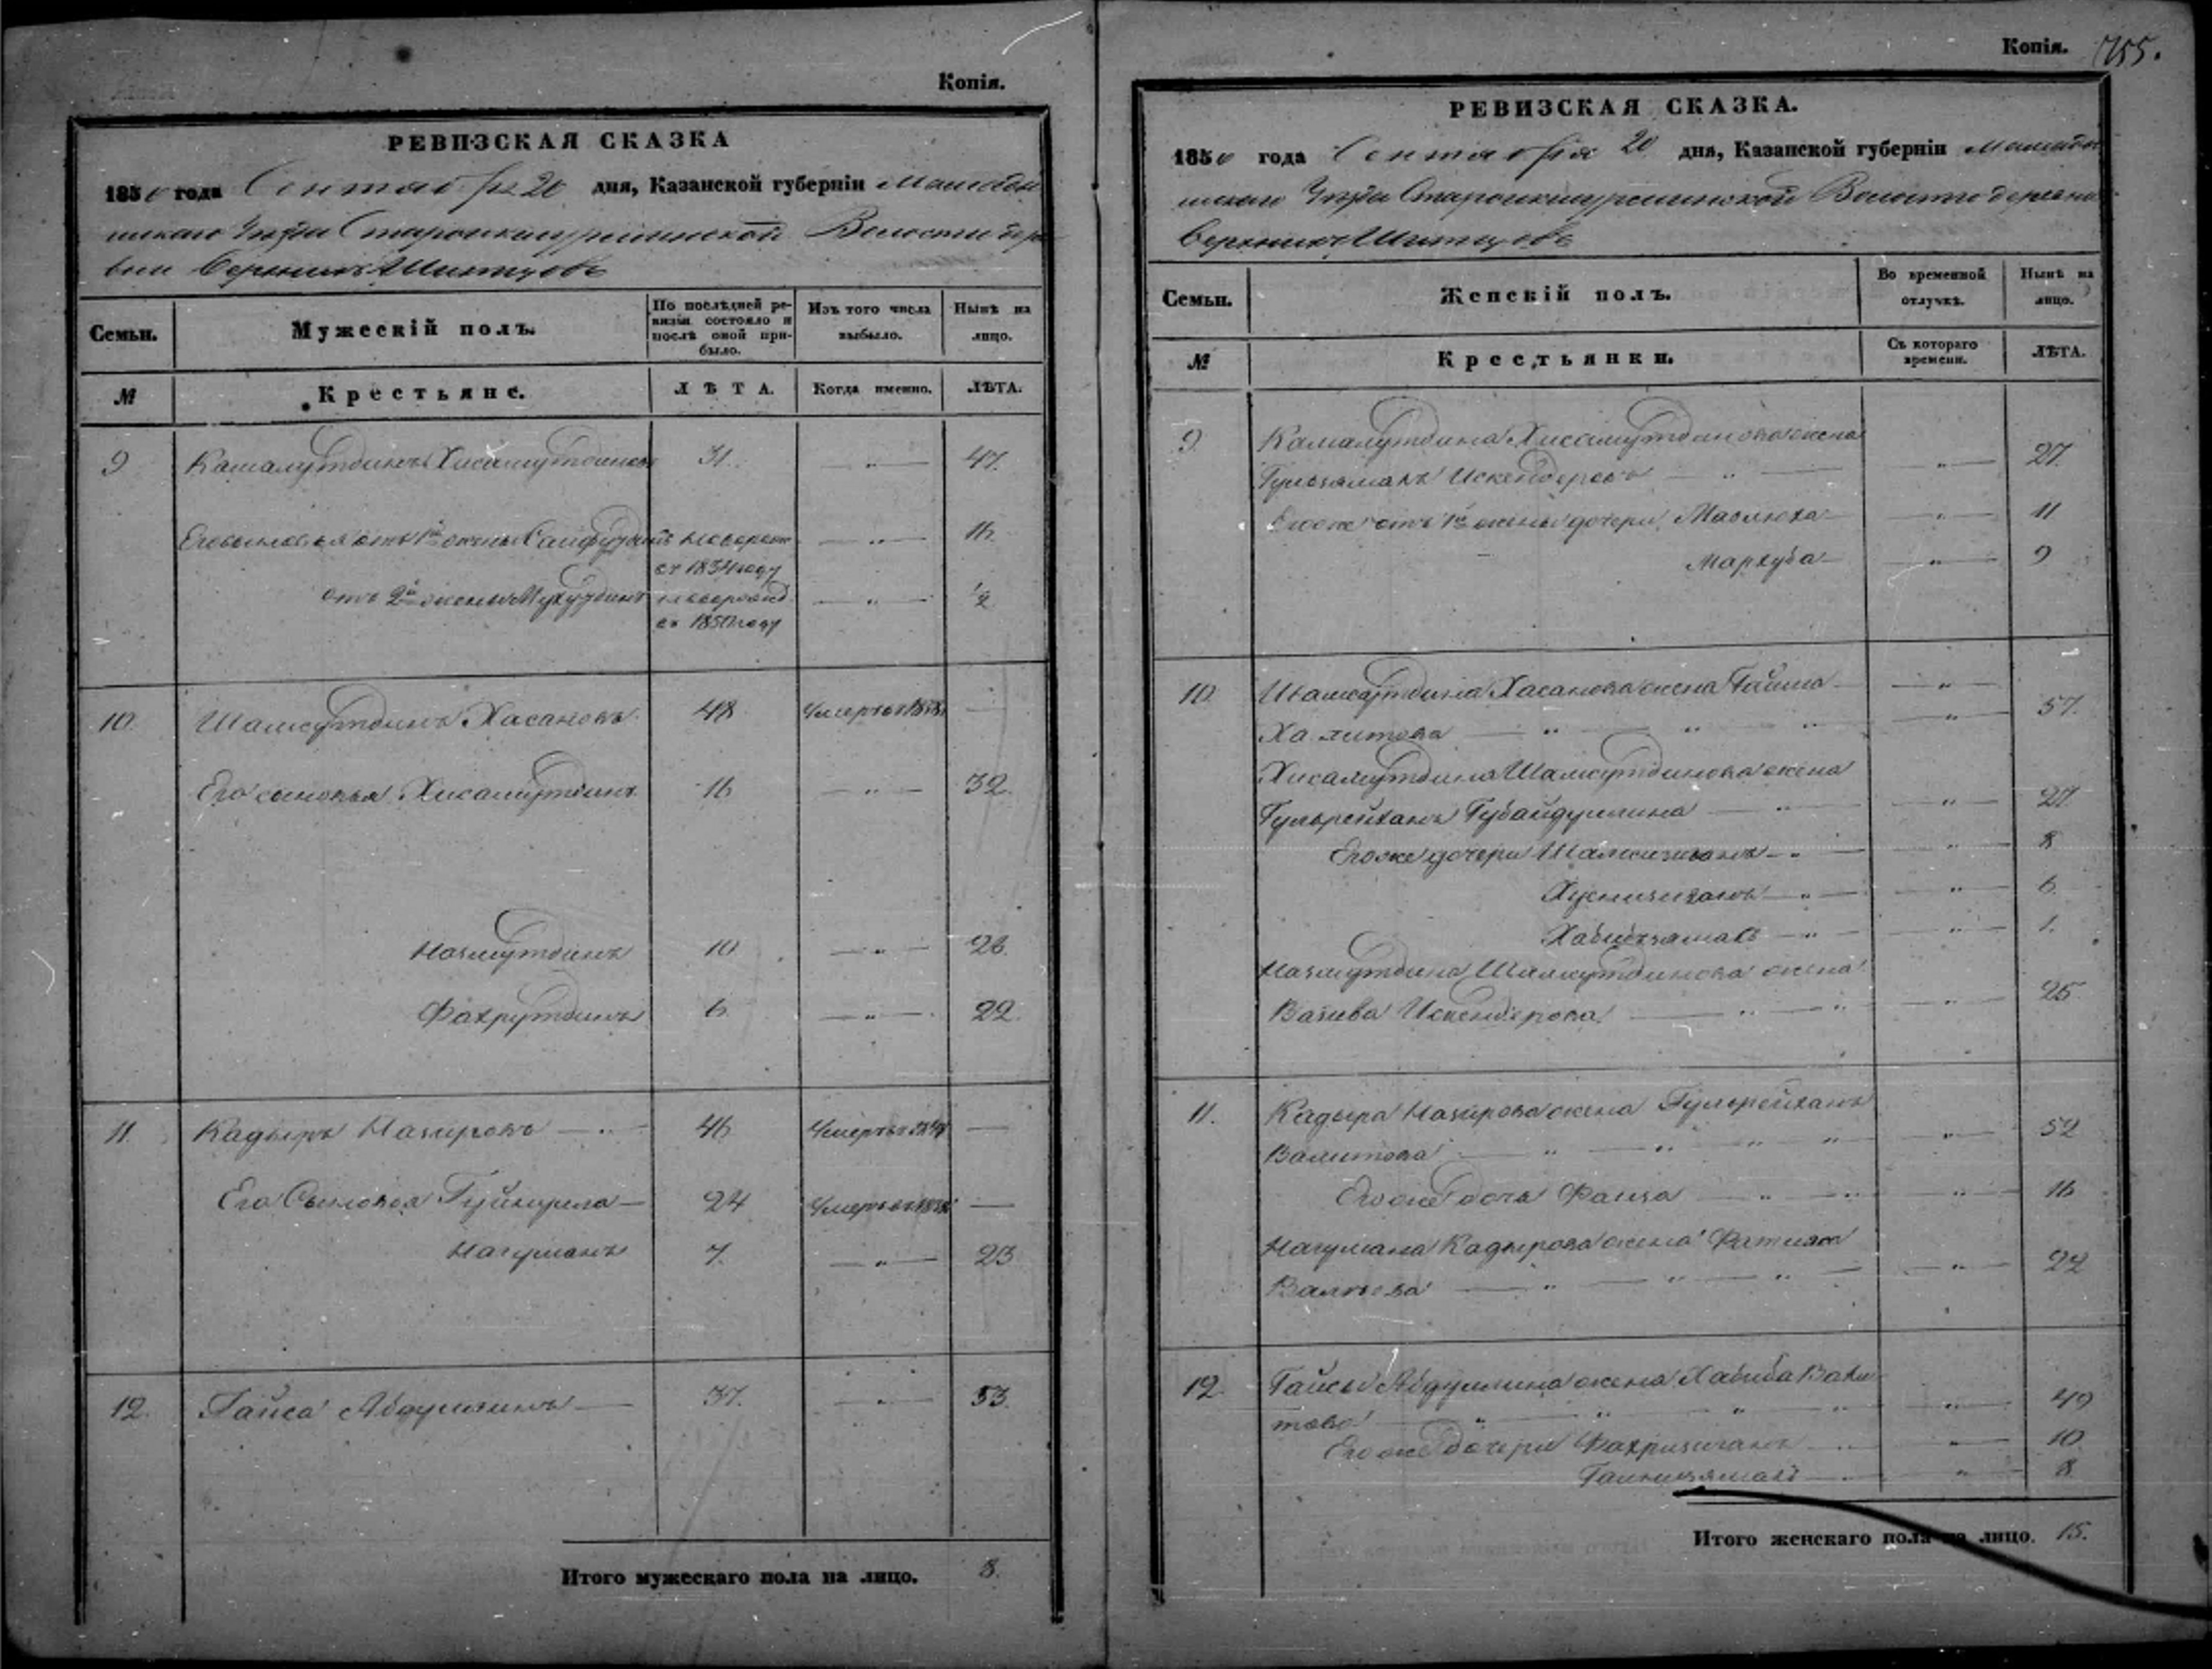 Копія.
РЕВИЗСКАЯ СКАЗКА
1850 года Сентяб ря 20 дня, Казанской губерніи Мамады
шскаго Уезда Старо Волости дере
вни Верхнихъ Шитцовъ
Семьи.
Мужескій полъ.
По послѣдней ре-
визіи состояло и
послѣ оной при-
было.
Изъ того числа
выбыло.
Нынѣ на
лицо.
№
Крестьяне.
ЛѢТА.
Когда именно.
ЛѢТА.
9 Камалутдинъ Хисамутдиновъ 31. — " — 47.
Его сыновья отъ 1й жены Сайфутдинъ новорожд — " — 16.
въ 1834 году
отъ 2й жены новорожд — " — ½
въ 1850 году
10. Шамсутдинъ Хасановъ 48 Умеръ въ —
Его сыновья Хисамутдинъ 16 — " — 32.
Назмутдинъ 10 — " — 26.
Фахрутдинъ 6. — " — 22.
11. Кадыръ Назировъ — " — 46 Умеръ въ —
Его Сыновья — 24 Умеръ въ —
Нагуманъ 7. — " — 23
12. Гайса Абдуллинъ — 37. — " — 53.
Итого мужескаго пола на лицо. 8.
Копія. 755.
РЕВИЗСКАЯ СКАЗКА.
1850 года Сентября 20 дня, Казанской губерніи Мамады
шскаго Уезда Старо Волости деревни
Верхнихъ Шитцовъ
Семьи.
Женскій полъ.
Во временной
отлучкѣ.
Нынѣ на
лицо.
№
Крестьянки.
Съ котораго
времени.
ЛѢТА.
9. Камалутдина Хисамутдинова жена
Гульзяманъ Искендерова — " — — " — 27.
Егоже отъ 1й жены дочери Мавлюха — — " — 11
Мархуба — — " — 9
10. Шамсутдина Хасанова жена Гайша — — " —
Халитова — " — " " — " — 57.
Хисамутдина Шамсутдинова жена
Гульрейханъ Губайдуллина — " — — " — 27.
Егоже дочери Шамсизиганъ — " — — " — 8
Хуснизиганъ — " — — " — 6.
Хабибзямалъ — " — — " — 1.
Назмутдина Шамсутдинова жена
Вазива Искендерова — " — " — " — 25.
11. Кадыра Назирова жена Гульрейханъ
Валитова — " — " — " " — " — 52
Егоже дочь Фаиза — " — " — " — 16
Нагумана Кадырова жена Фатима
Валиева — " — " — " — — " — 22
12. Гайсы Абдуллина жена Хабиба Вахи
това — " — " — " — " — " — 49
Егоже дочери Фахризиганъ — " — " — 10
Галинзямалъ — " — " — 8
Итого женскаго пола на лицо. 15.